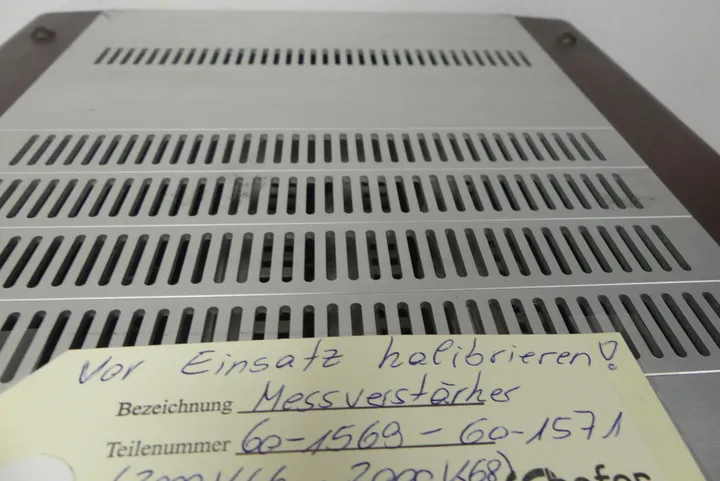 Vor Einsatz kalibrieren!
Bezeichnung Messverstärker
Teilenummer 60-1569 - 60-1571